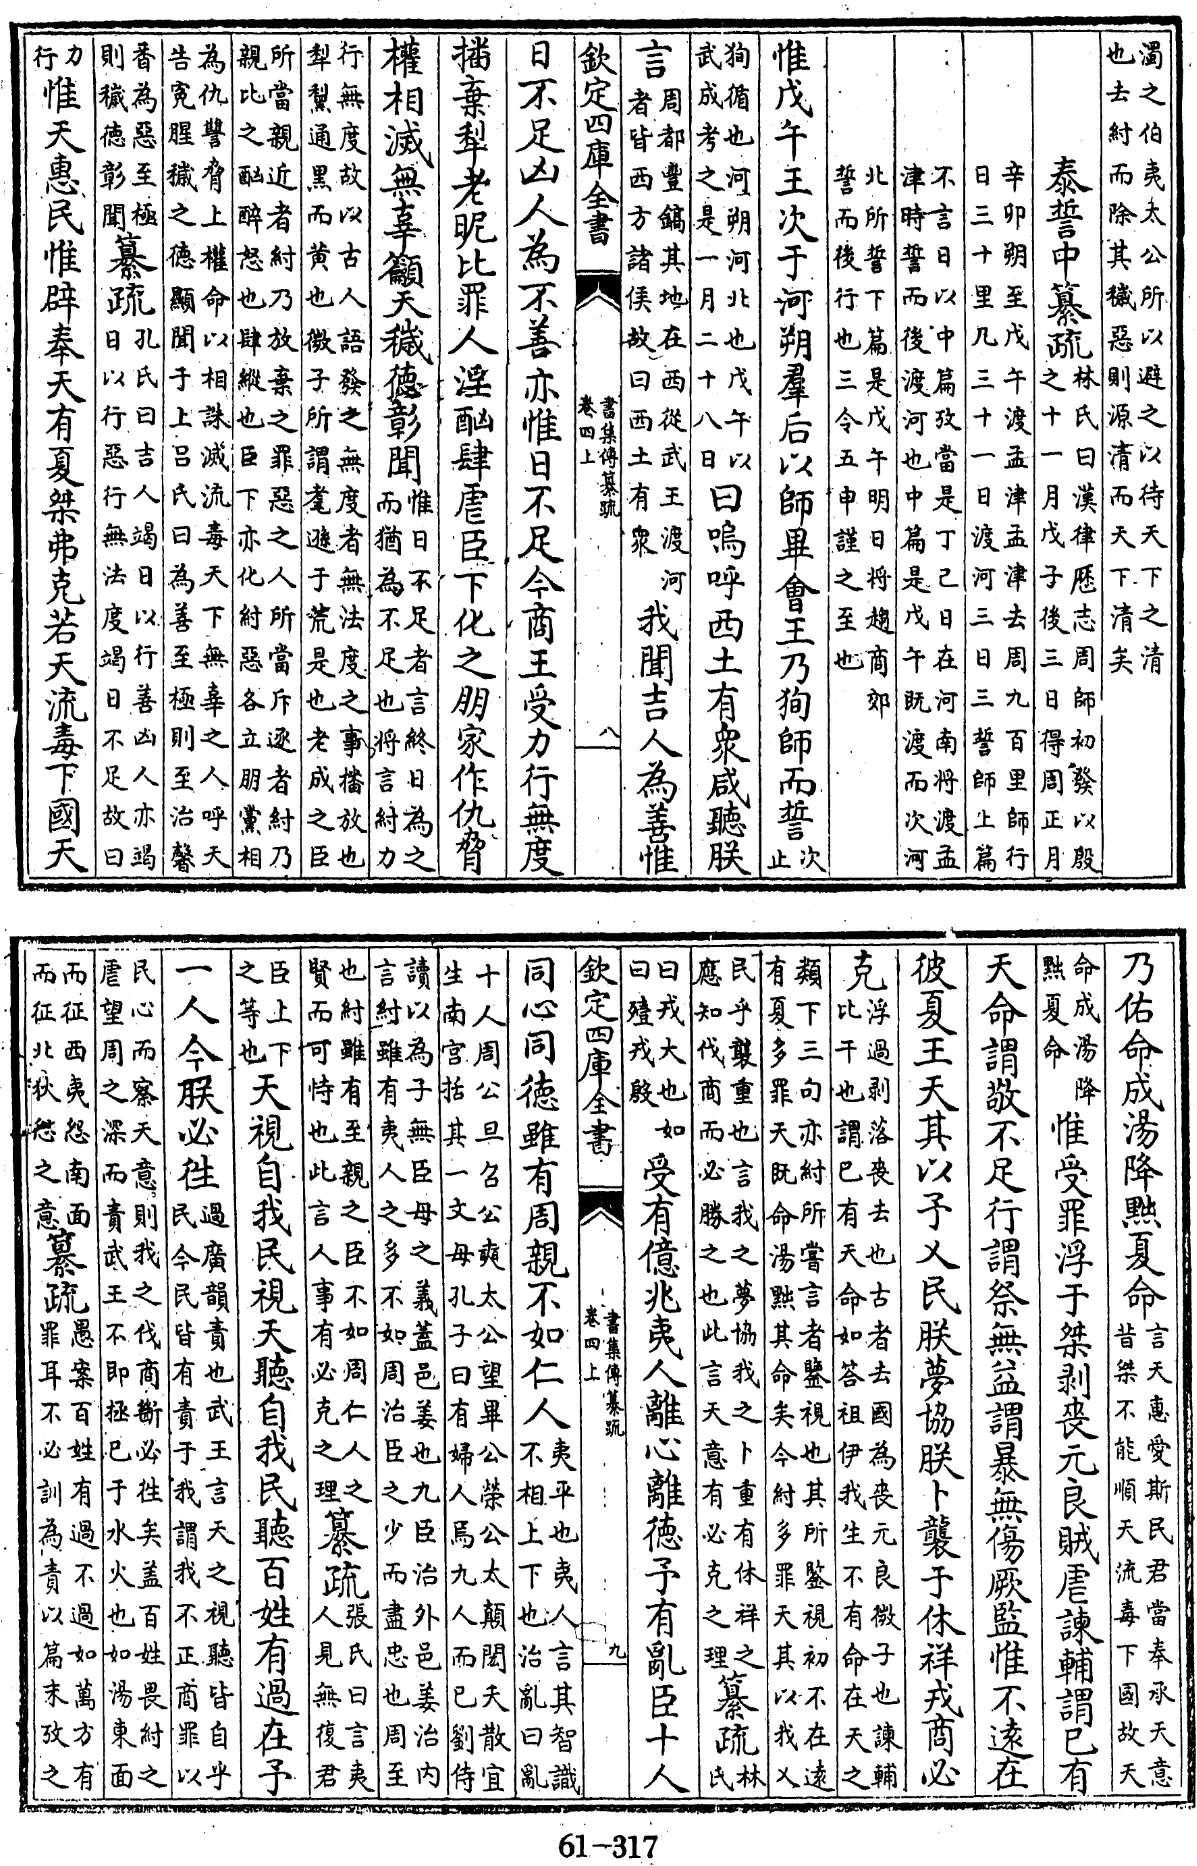 濁之伯夷太公所以避之以待天下之清
也去紂而除其穢惡則源清而天下清矣
泰誓中纂疏林氏曰漢律厯志周師初發以殷
之十一月戊子後三日得周正月
辛卯朔至戊午渡孟津孟津去周九百里師行
日三十里凡三十一日渡河三日三誓師上篇
不言日以中篇攷當是丁巳日在河南將渡孟
津時誓而後渡河也中篇是戊午既渡而次河
北所誓下篇是戊午明日将趨商郊
誓而後行也三令五申謹之至也
惟戊午王次于河朔羣后以師畢會王乃狥師而誓次
止
狥循也河朔河北也戊午以
武成考之是一月二十八日
曰嗚呼西土有衆咸聽朕
言周都豐鎬其地在西從武王渡河
者皆西方諸侯故曰西土有衆
我聞吉人為善惟
欽定四庫全書
書集傳纂疏
卷四上
八
日不足凶人為不善亦惟日不足今商王受力行無度
播棄犁老昵比罪人淫酗肆虐臣下化之朋家作仇脅
權相滅無辜籲天穢德彰聞惟日不足者言終日為之
而猶為不足也将言紂力
行無度故以古人語發之無度者無法度之事播放也
犁黧通黑而黄也微子所謂耄遜于荒是也老成之臣
所當親近者紂乃放棄之罪惡之人所當斥逐者紂乃
親比之酗醉怒也肆縱也臣下亦化紂惡各立朋黨相
為仇讐脅上權命以相誅滅流毒天下無辜之人呼天
告寃腥穢之德顯聞于上呂氏曰為善至極則至治馨
香為惡至極
則穢德彰聞
纂疏孔氏曰吉人竭日以行善凶人亦竭
日以行惡行無法度竭日不足故曰
力
行
惟天惠民惟辟奉天有夏桀弗克若天流毒下國天
乃佑命成湯降黜夏命言天惠愛斯民君當奉承天意
昔桀不能順天流毒下國故天
命成湯降
黜夏命
惟受罪浮于桀剥喪元良賊虐諫輔謂已有
天命謂敬不足行謂祭無益謂暴無傷厥監惟不逺在
彼夏王天其以予乂民朕夢協朕卜襲于休祥戎商必
克浮過剥落喪去也古者去國為喪元良微子也諫輔
比干也謂已有天命如答祖伊我生不有命在天之
類下三句亦紂所嘗言者鑒視也其所鑒視初不在逺
有夏多罪天既命湯黜其命矣今紂多罪天其以我乂
民乎襲重也言我之夢協我之卜重有休祥之
應知伐商而必勝之也此言天意有必克之理
纂疏林
氏
曰戎大也如
曰殪戎殷
受有億兆夷人離心離德予有亂臣十人
欽定四庫全書
書集傳纂疏
卷四上
九
同心同德雖有周親不如仁人夷平也夷人言其智識
不相上下也治亂曰亂
十人周公旦召公奭太公望畢公榮公太顛閎夭散宜
生南宮括其一文母孔子曰有婦人焉九人而已劉侍
讀以為子無臣母之義蓋邑姜也九臣治外邑姜治内
言紂雖有夷人之多不如周治臣之少而盡忠也周至
也紂雖有至親之臣不如周仁人之
賢而可恃也此言人事有必克之理
纂疏張氏曰言夷
人見無復君
臣上下
之等也
天視自我民視天聽自我民聽百姓有過在予
一人今朕必徃過廣韻責也武王言天之視聽皆自乎
民今民皆有責于我謂我不正商罪以
民心而察天意則我之伐商斷必徃矣盖百姓畏紂之
虐望周之深而責武王不即拯已于水火也如湯東面
而征西夷怨南面
而征北狄怨之意
纂疏愚案百姓有過不過如萬方有
罪耳不必訓為責以篇末攷之
61-317